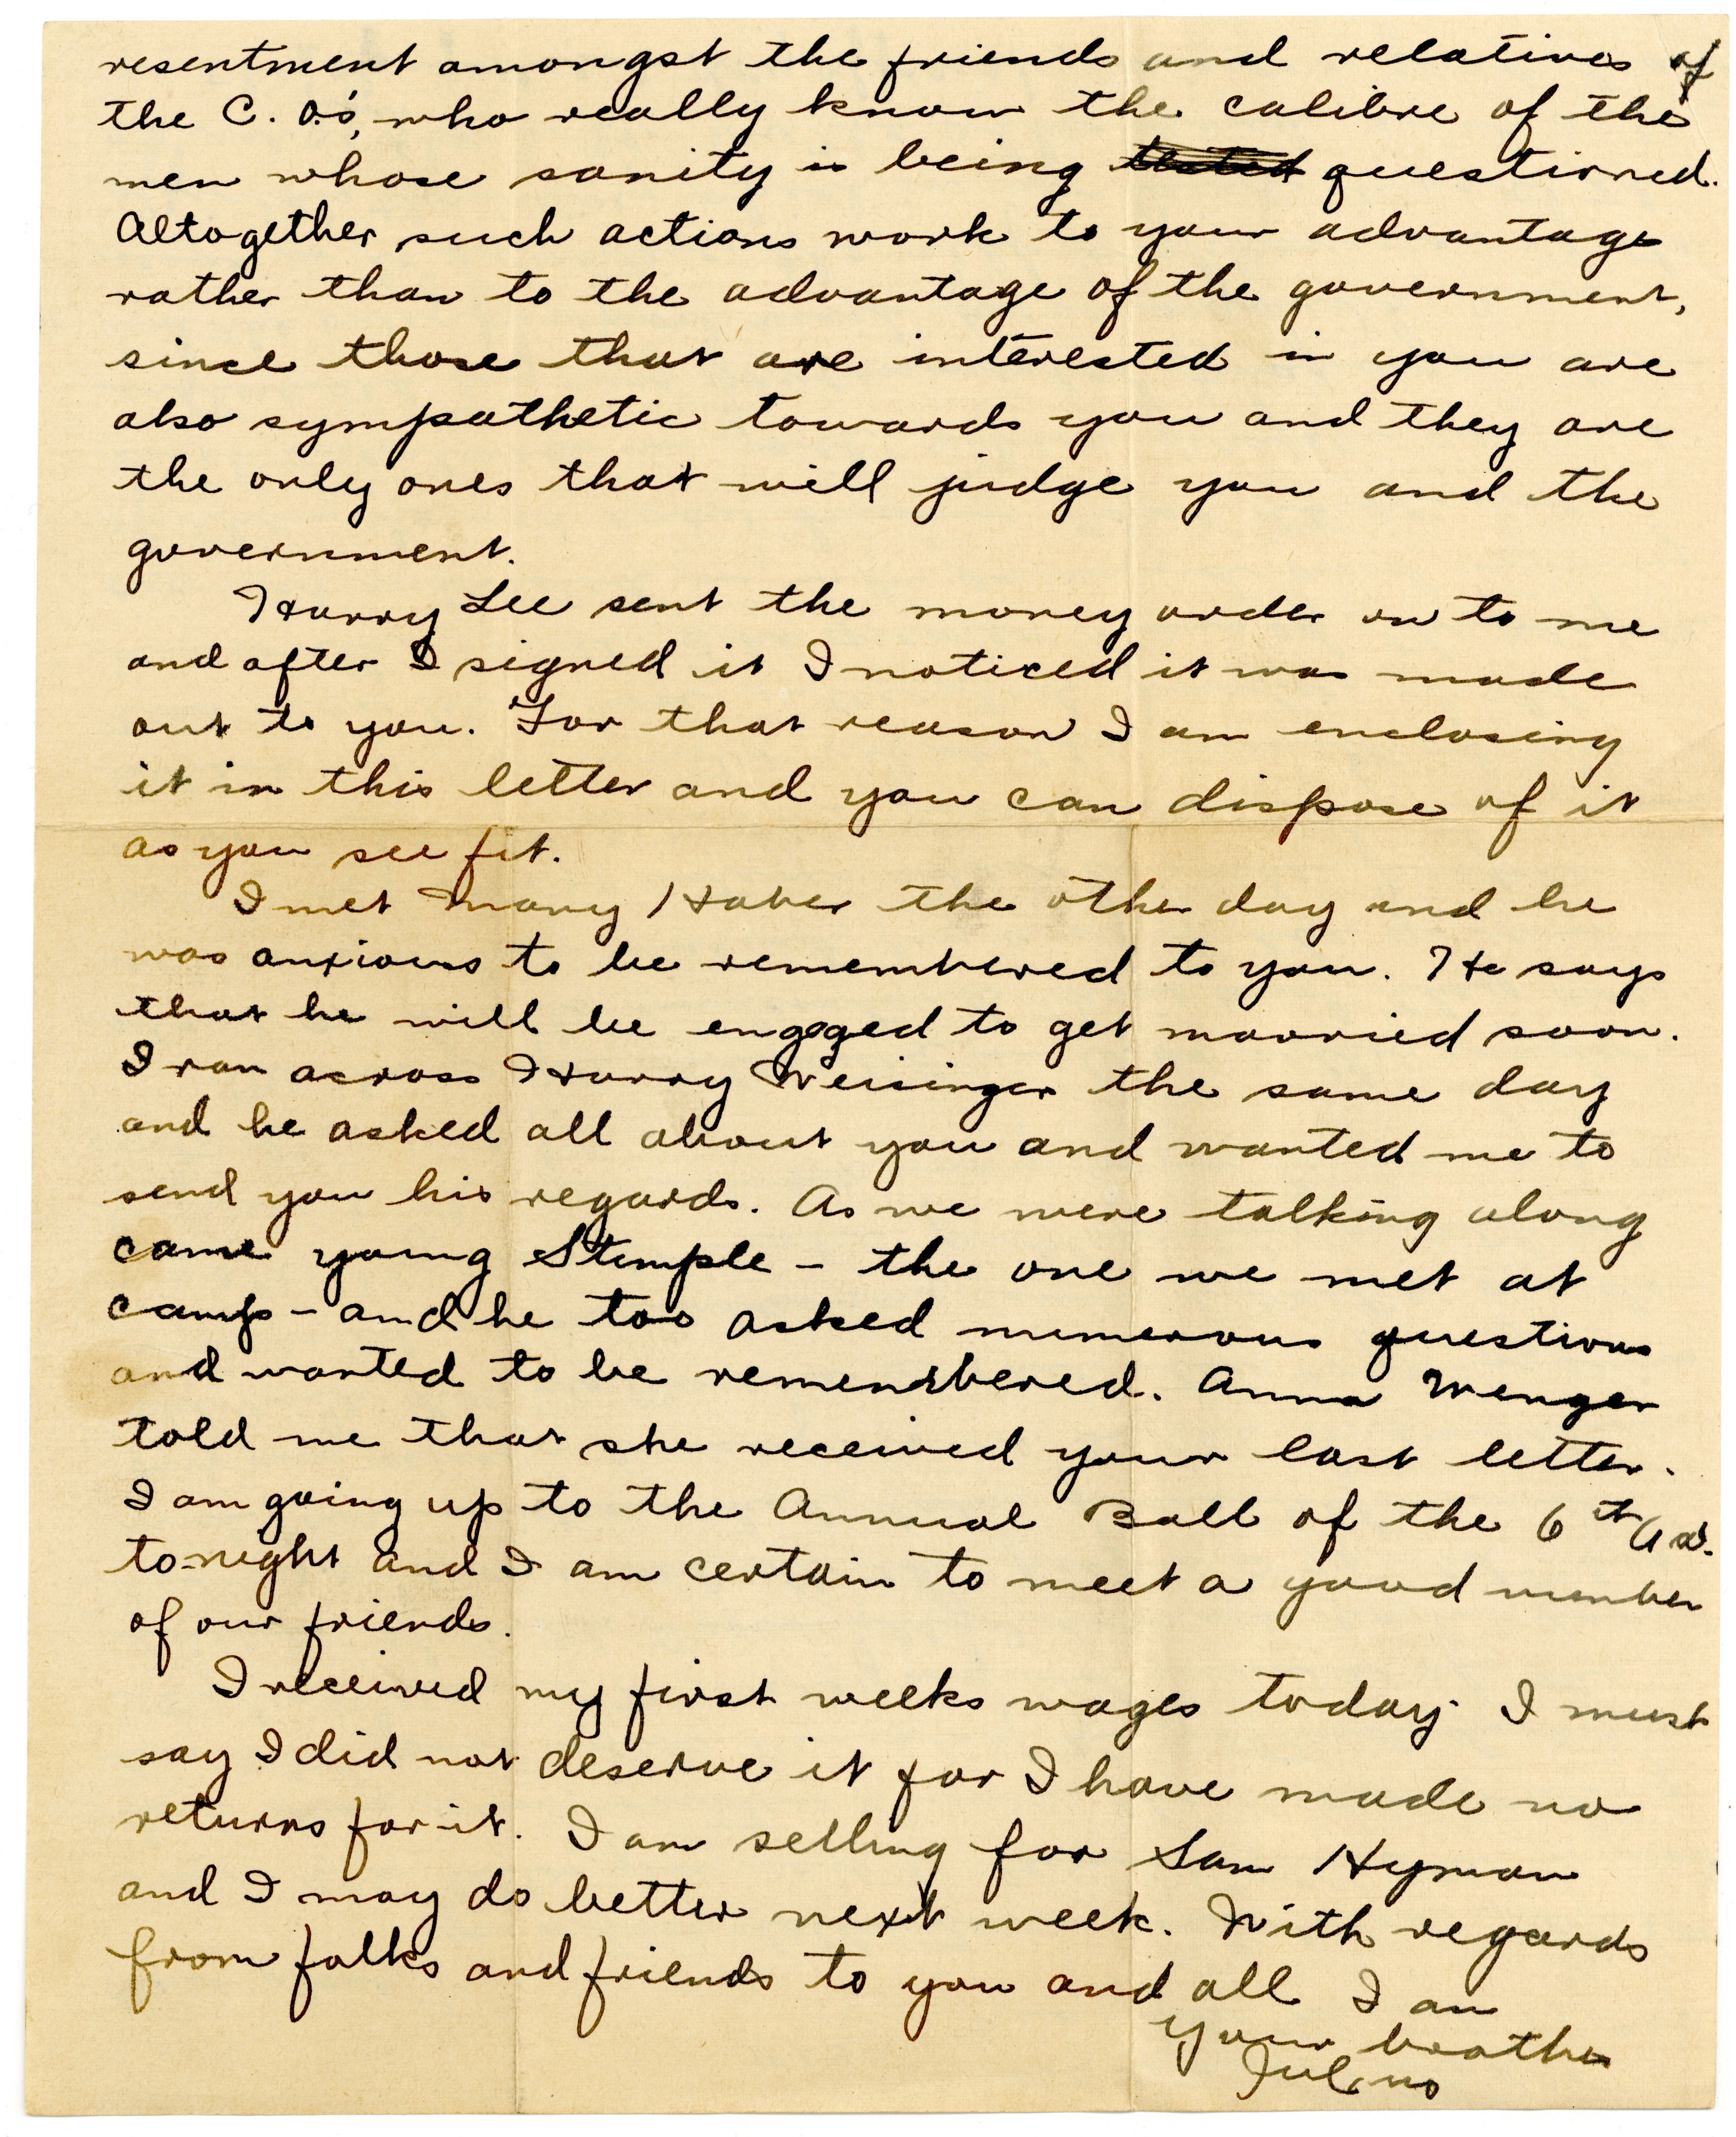 resentment amongst the friends and relatives of
the C. O.'s, who really know the calibre of the
men whose sanity is being tested questioned.
Altogether such actions work to your advantage
rather than to the advantage of the government,
since those that are interested in you are
also sympathetic towards you and they are
the only ones that will judge you and the
government.
Harry Lee sent the money order on to me
and after I signed it I noticed it was made
out to you. For that reason I am enclosing
it in this letter and you can dispose of it
as you see fit.
I met Many Haber the other day and he
was anxious to be remembered to you. He says
that he will be engaged to get married soon.
I ran across Harry Weisinger the same day
and he asked all about you and wanted me to
send you his regards. As we were talking along
came young Stimple - the one we met at
camp - and he too asked numerous questions
and wanted to be remembered. Anna Wenger
told me that she received your last letter.
I am going up to the Annual Ball of the 6th
to-night and I am certain to meet a good number
of our friends.
I received my first weeks wages today. I must
say I did not deserve it for I have made no
returns for it. I am selling for Sam Hyman
and I may do better next week. With regards
from folks and friends to you and all I am
your brother
Julius